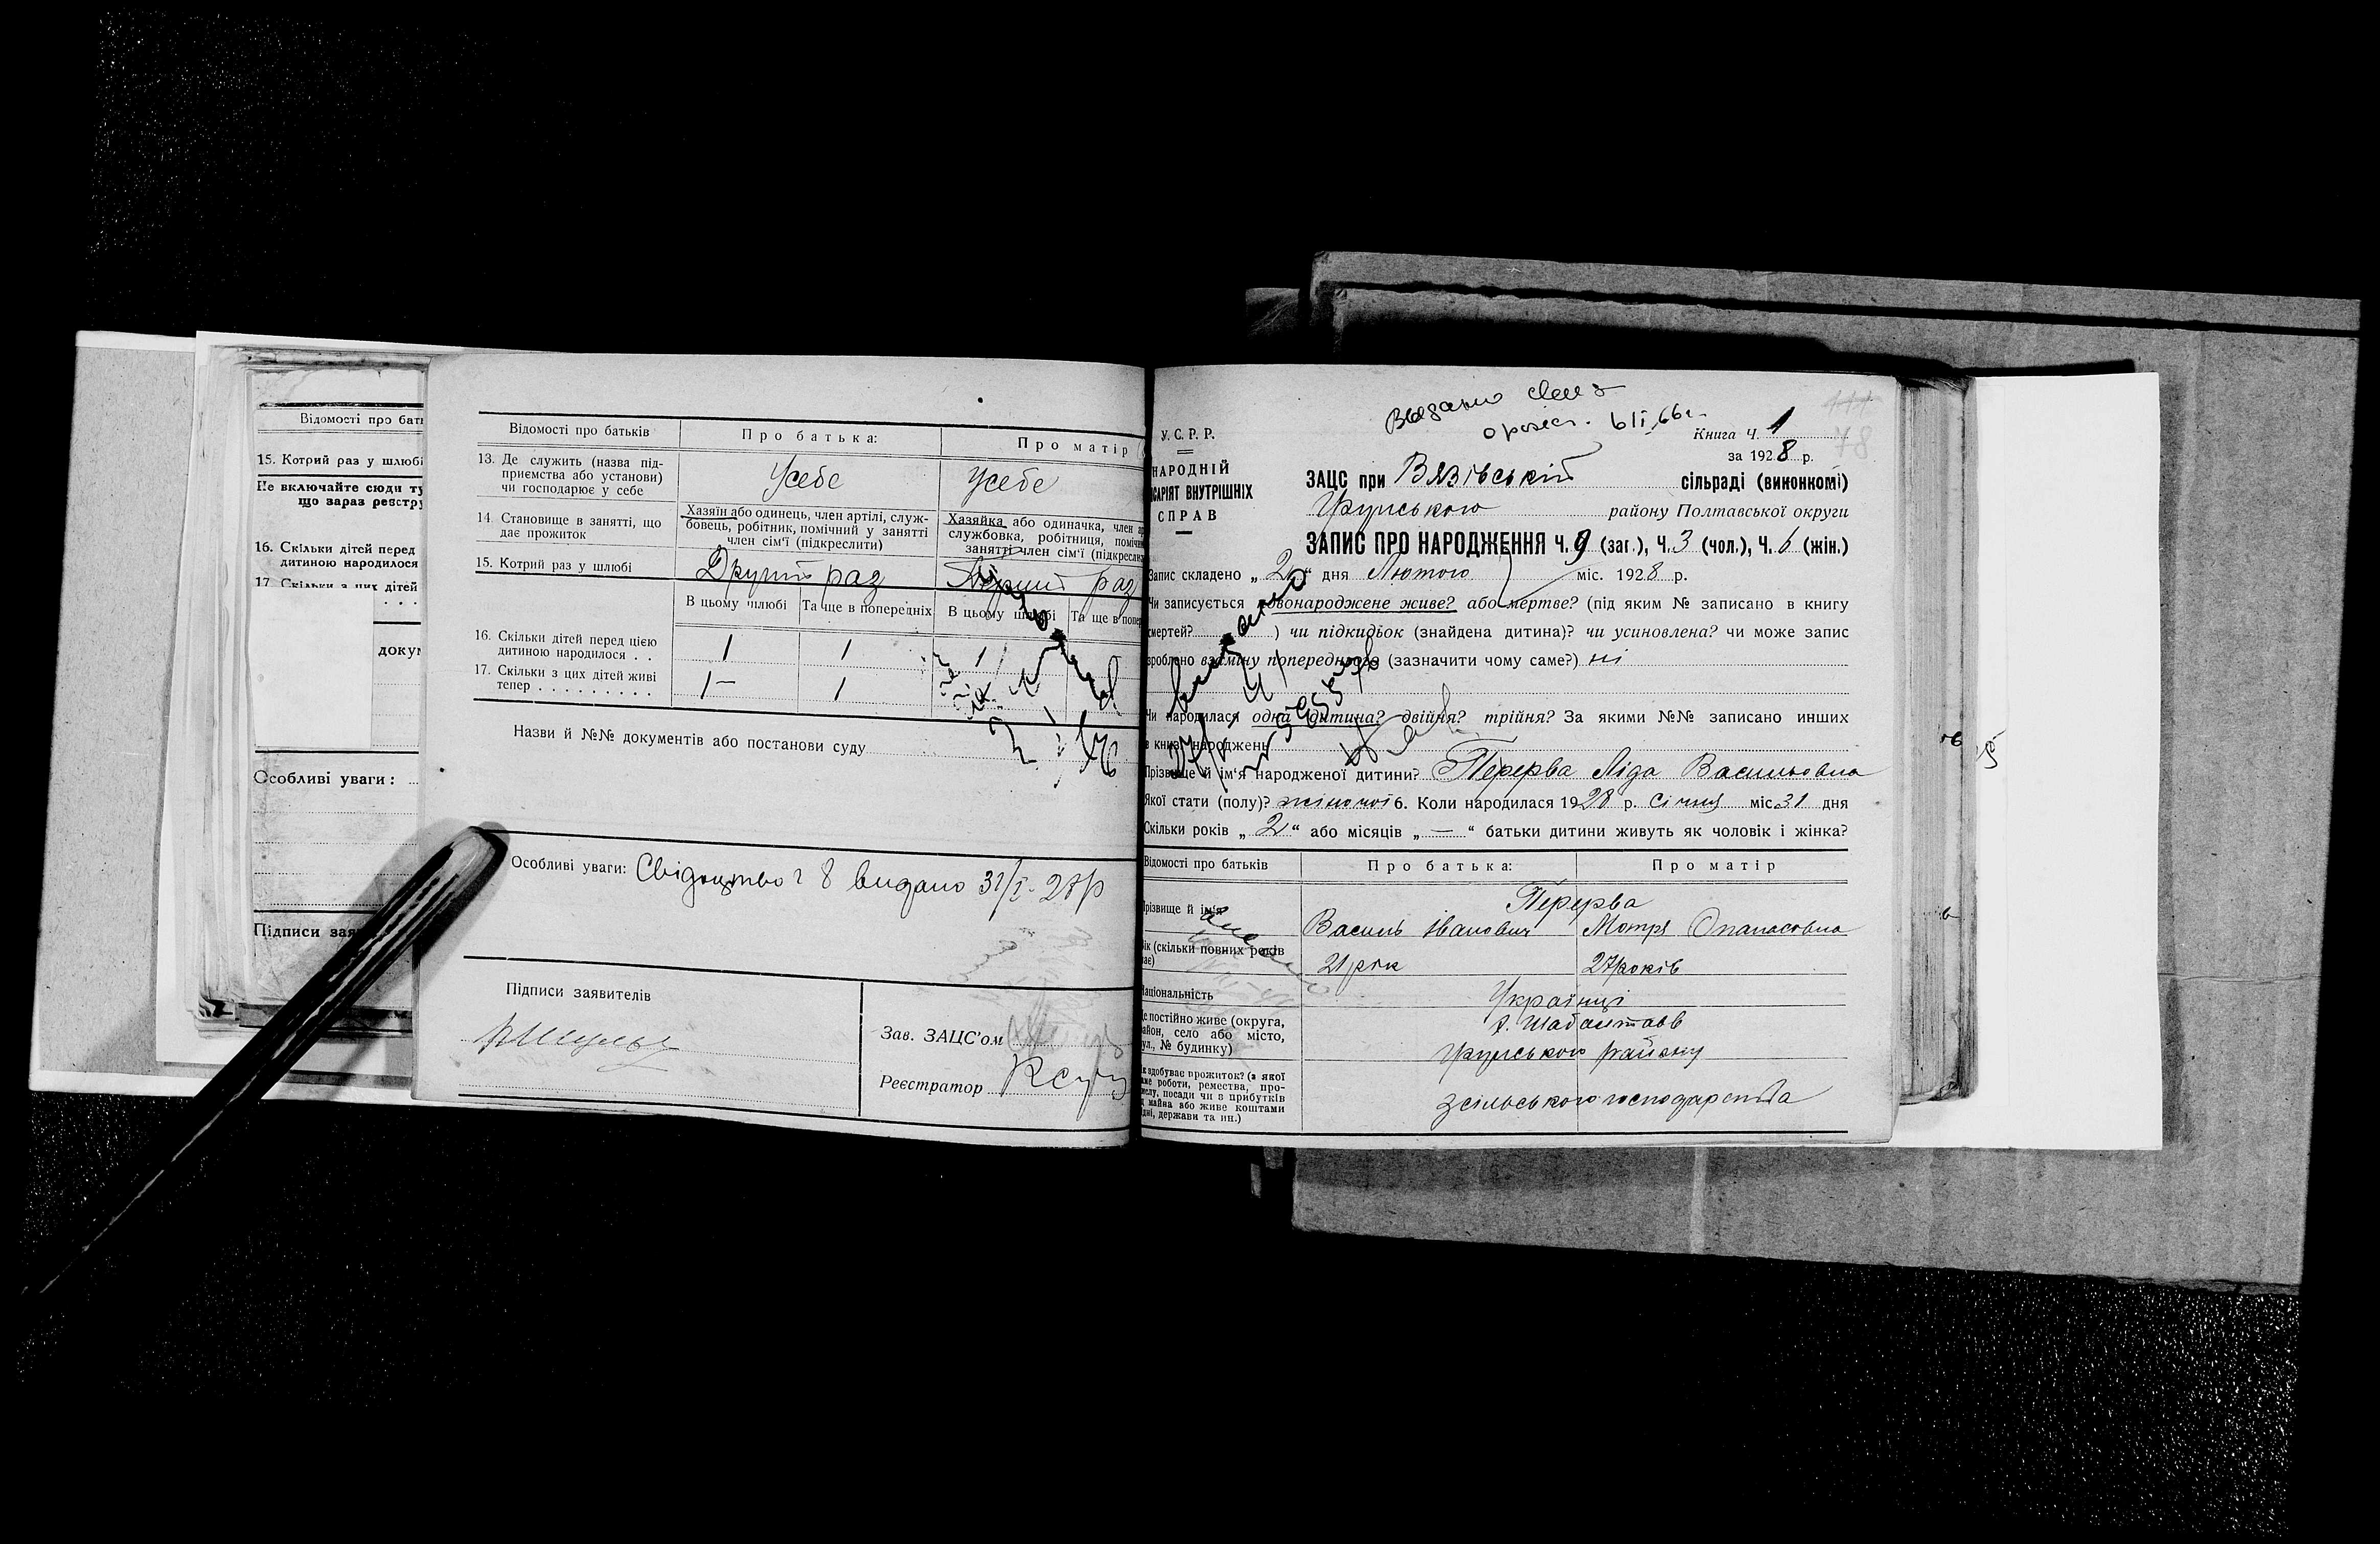 Відомості про бать
15. Котрий раз у шлюбі
Не включайте сюди ту
що зараз реєстру
16. Скільки дітей перед
дитиною народилося
17. Скільки з них дітей
докум
Особливі уваги:
Підписи зая
Відомості про батьків
Про батька:
Про матір
13. Де служить (назва під-
приємства або установи)
чи господарює у себе
Усебе
Усебе
14. Становище в занятті, що
дає прожиток
Хазяїн або одинець, член артілі, служ-
бовець, робітник, помічний у занятті
член сім'ї (підкреслити)
Хазяйка або одиначка, член ар
службовка, робітниця, помічн
занятті член сім'ї (підкресли
15. Котрий раз у шлюбі
Другий раз
Перший раз
В цьому шлюбі
Та ще в попередніх
В цьому шлюбі
Та ще в попер
16. Скільки дітей перед цією
дитиною народилося . .
1
1
1
17. Скільки з цих дітей живі
тепер . . . . . . . . . .
1
1
Назви й №№ документів або постанови суду
Особливі уваги: Свідоцтво 8 видано 31/I-28/р
Підписи заявителів
Зав. ЗАЦС'ом
Реєстратор
Выдано
6 II 66 г.
У. С. Р. Р.
НАРОДНІЙ
САРІЯТ ВНУТРІШНІХ
СПРАВ
Книга Ч. 1
78
за 1928 р.
ЗАЦС при Вязівській сільраді (виконкомі)
району Полтавської округи
ЗАПИС ПРО НАРОДЖЕННЯ Ч. 9 (заг.), Ч. 3 (чол.), Ч. 6 (жін.)
Запис складено „2" дня Лютого міс. 1928 р.
Чи записується новонароджене живе? або мертве? (під яким № записано в книгу
смертей? ) чи підкидьок (знайдена дитина)? чи усиновлена? чи може запис
зроблено взаміну попереднього (зазначити чому саме?) ні
видано
Чи народилася одна дитина? двійня? трійня? За якими №№ записано инших
в книзі народжень
Прізвище й ім'я народженої дитини? Перерва Ліда Васильовна
Якої стати (полу)? жіночої 6. Коли народилася 1928 р. січня міс 31 дня
Скільки років „2" або місяців „—" батьки дитини живуть як чоловік і жінка?
Відомості про батьків
Про батька:
Про матір
Прізвище й ім'я
Перерва
Василь Іванович
Мотря Опанасовна
вік (скільки повних років
має)
21 рік
27 років
Національність
Українці
Де постійно живе (округа,
район, село або місто,
вул., № будинку)
району
Як здобуває прожиток? (з якої
саме роботи, ремества, про-
мислу, посади чи в прибутків
від майна або живе коштами
рідні, держави та ин.)
Зсільського господарства